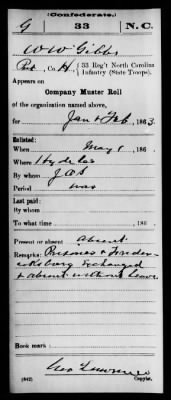 (Confederate.)
G 33 N.C.
W W Gibbs
Pvt, Co. H, 33 Reg't North Carolina
Infantry (State Troops).
Appears on
Company Muster Roll
of the organization named above,
for Jan & Feb, 1863.
Enlisted:
When May 1, 186
Where Hyde Co
By whom
Period war
Last paid:
By whom
To what time , 186 .
Present or absent Absent
Remarks: Prisoner
Exchanged
& absent without leave
Book mark:
Geo
(642) Copyist.